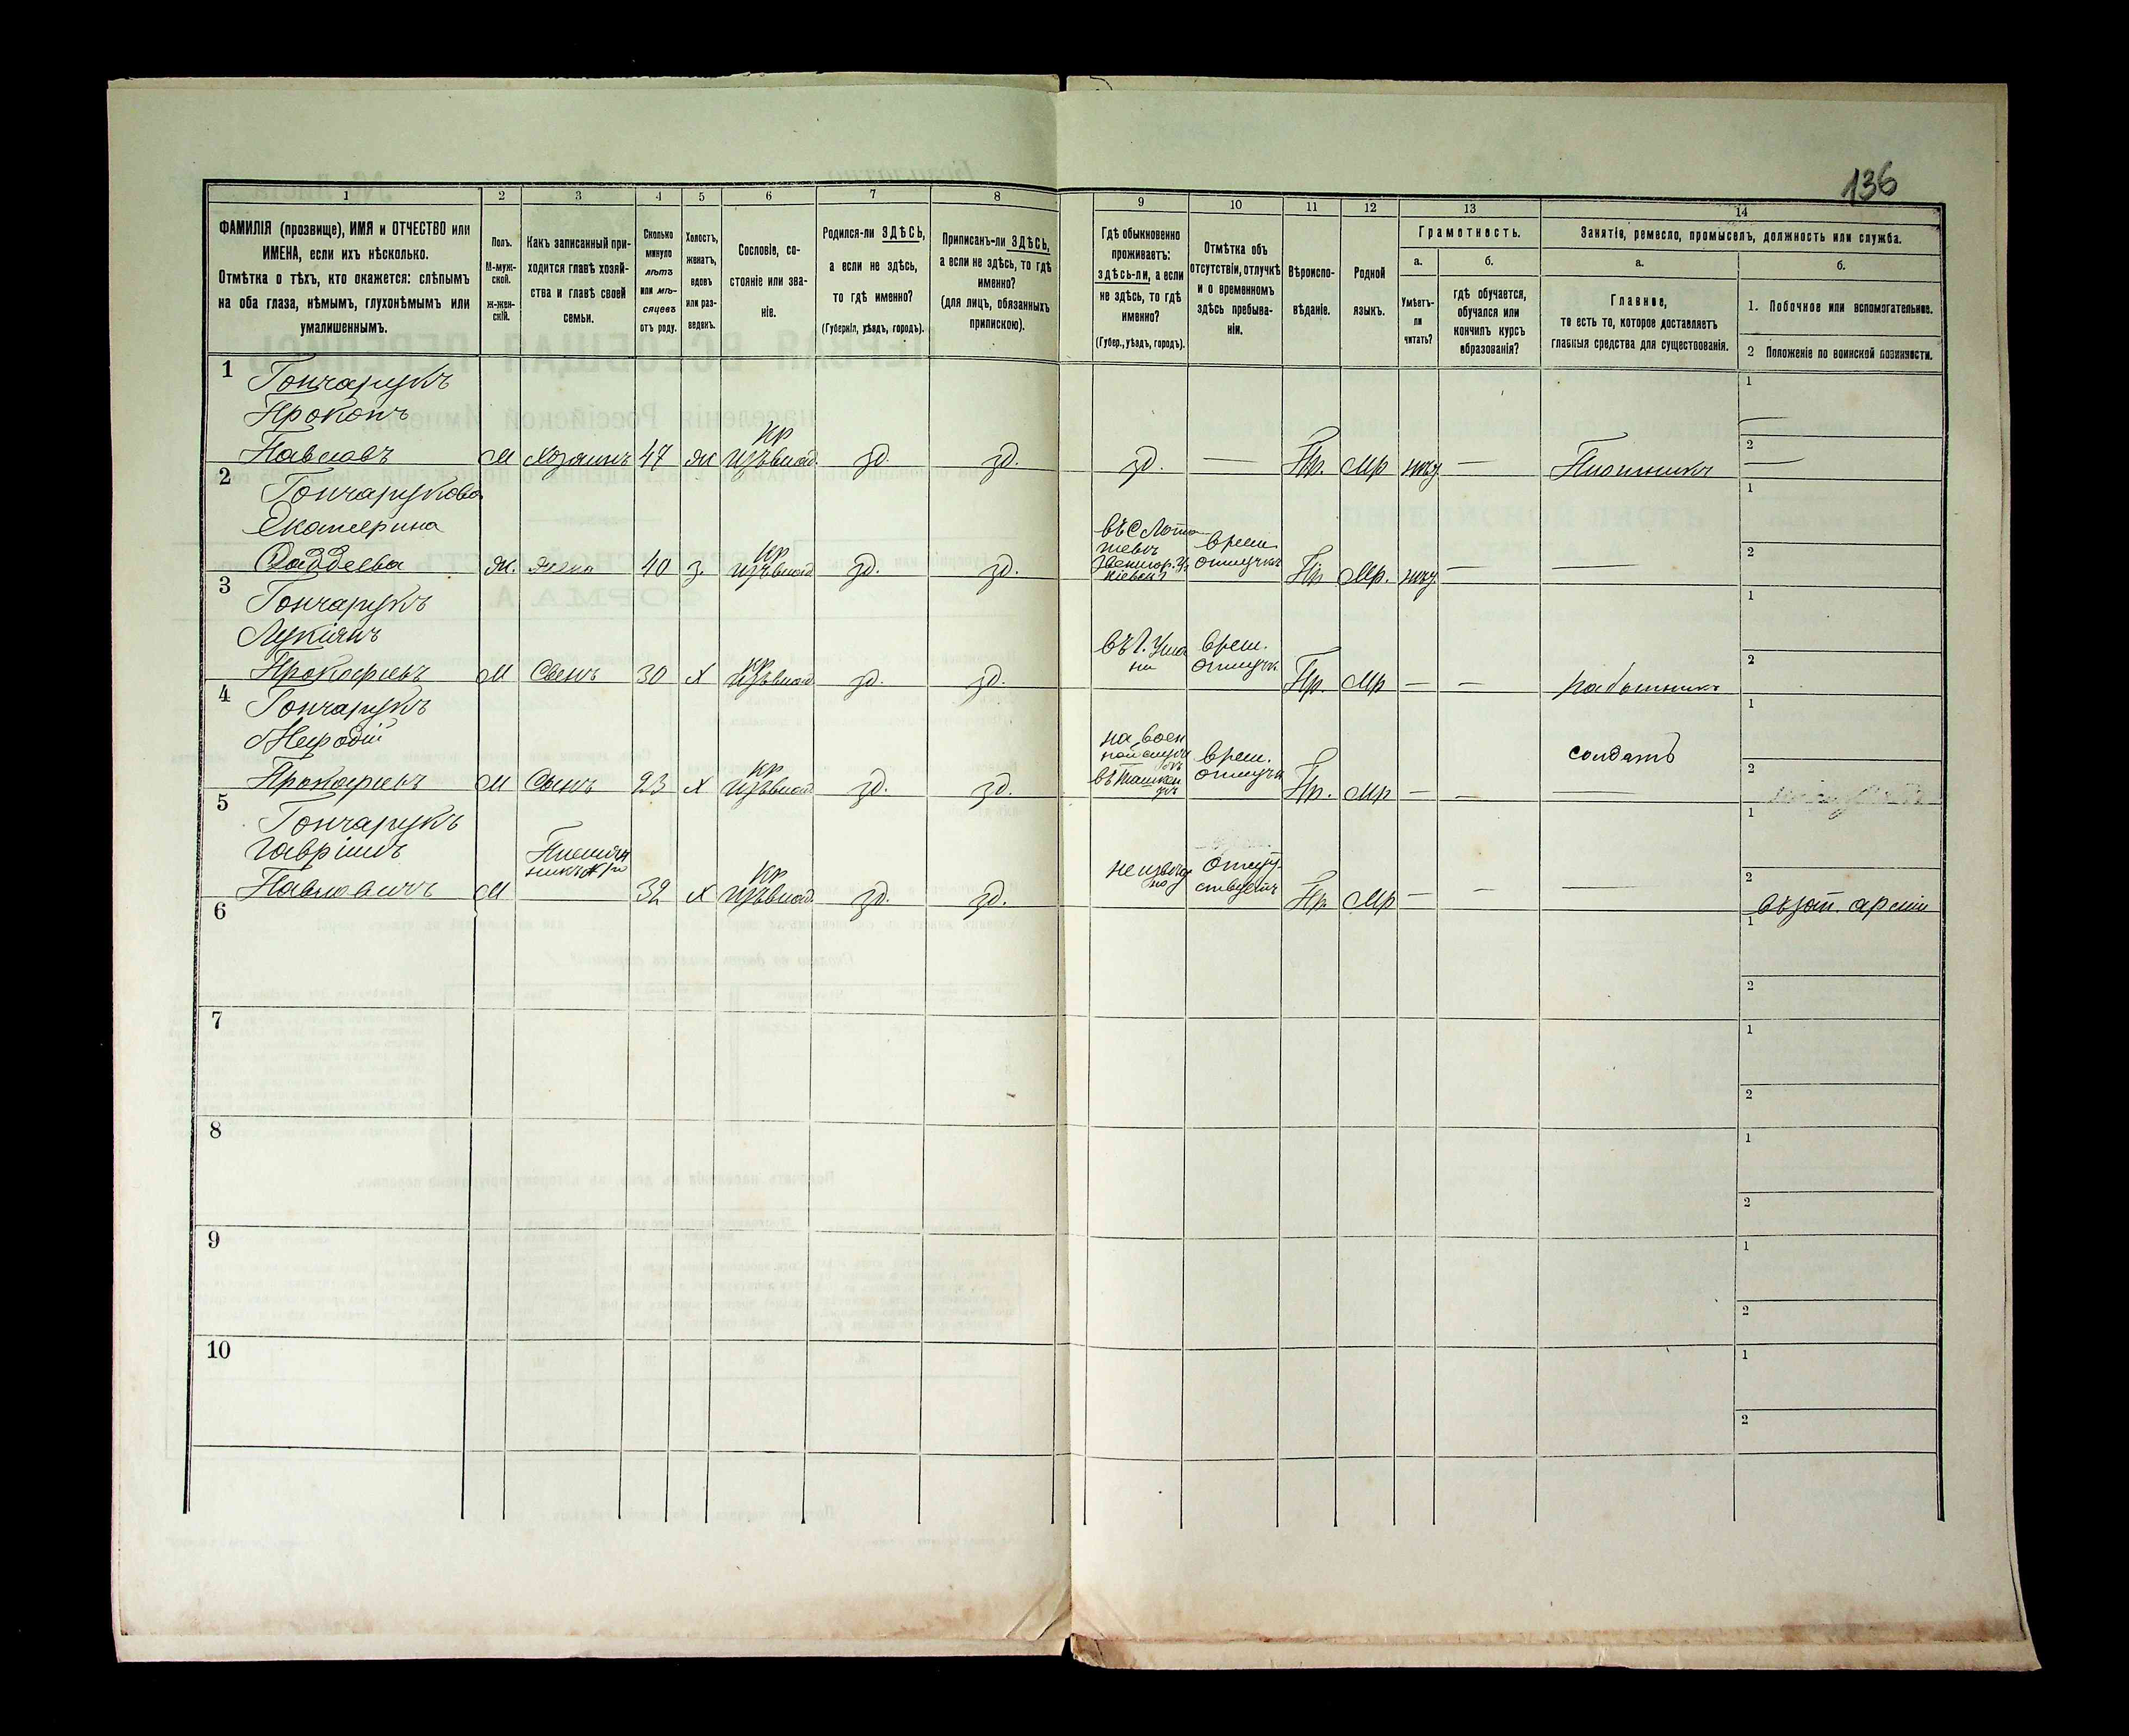 136
1
ФАМИЛІЯ (прозвище), ИМЯ и ОТЧЕСТВО или
ИМЕНА, если ихъ нѣсколько.
Отмѣтка о тѣхъ, кто окажется: слѣпымъ
на оба глаза, нѣмымъ, глухонѣмымъ или
умалишеннымъ.
2
Полъ.
М-муж-
ской.
Ж-жен-
скій.
3
Какъ записанный при-
ходится главѣ хозяй-
ства и главѣ своей
семьи.
4
Сколько
минуло
лѣтъ
или мѣ-
сяцевъ
отъ роду.
5
Холостъ,
женатъ,
вдовъ
или раз-
веденъ.
6
Сословіе, со-
стояніе или зва-
ніе.
7
Родился-ли ЗДѢСЬ,
а если не здѣсь,
то гдѣ именно?
(Губернія, уѣздъ, городъ).
8
Приписанъ-ли ЗДѢСЬ,
а если не здѣсь, то гдѣ
именно?
(для лицъ, обязанныхъ
припискою).
9
Гдѣ обыкновенно
проживаетъ:
здѣсь-ли, а если
не здѣсь, то гдѣ
именно?
(Губер., уѣздъ, городъ).
10
Отмѣтка объ
отсутствіи, отлучкѣ
и о временномъ
здѣсь пребыва-
ніи.
11
Вѣроиспо-
вѣданіе.
12
Родной
языкъ.
13
Грамотность.
а.
Умѣетъ-
ли
читать?
б.
гдѣ обучается,
обучался или
кончилъ курсъ
образованія?
14
Занятіе, ремесло, промыселъ, должность или служба.
а.
Главное,
то есть то, которое доставляетъ
главныя средства для существованія.
б.
1. Побочное или вспомогательное.
2 Положеніе по воинской повинности.
1 Гончарукъ
Прокопъ
Павловъ М Хозяинъ 47 Ж кр изъ влад. зд. зд. зд. — Пр. Мр — Плотникъ
1 —
2 —
2 Гончарукова
Екатерина
Фаддеева Ж. Жена 40 з. кр изъ влад зд. зд.
Звенигор. У.
времн
отлучкѣ Пр Мр. — —
1
2
3 Гончарукъ
Лукіянъ
Прокофіевъ М Сынъ 30 Х кр изъ влад. зд. зд.
въ г. Ума
ни
врем.
отлучк Пр. Мр — — работникъ
1
2
4 Гончарукъ
Мефодій
Прокофіевъ М Сынъ 23 Х кр изъ влад зд. зд.
на воен
ной служ
въ Ташкен
врем.
отлучк Пр. Мр — — солдатъ —
1
2
5 Гончарукъ
Гавріилъ
Павловичъ М
Племян
никъ
32 Х кр изъ влад. зд. зд.
неизвѣст
но
отсут-
ствуетъ Пр Мр — — —
1
2 въ зап. арміи
6
1
2
7
1
2
8
1
2
9
1
2
10
1
2